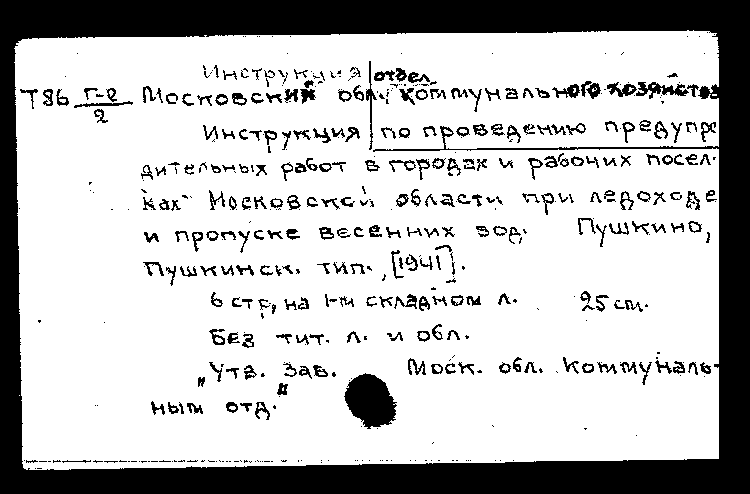 Инструкция отдел
Т86 Г-2/2 Московский обл. коммунального хозяйства
Инструкция по проведению предупре
дительных работ в городах и рабочих посел-
ках Московской области при ледоходе
и пропуске весенних вод. Пушкино,
Пушкинск. тип., [1941].
6 стр, на 1-м складном л. 25 cm.
Без тит. л. и обл.
"Утв. Зав. Моск. обл. Коммуналь-
ным отд."